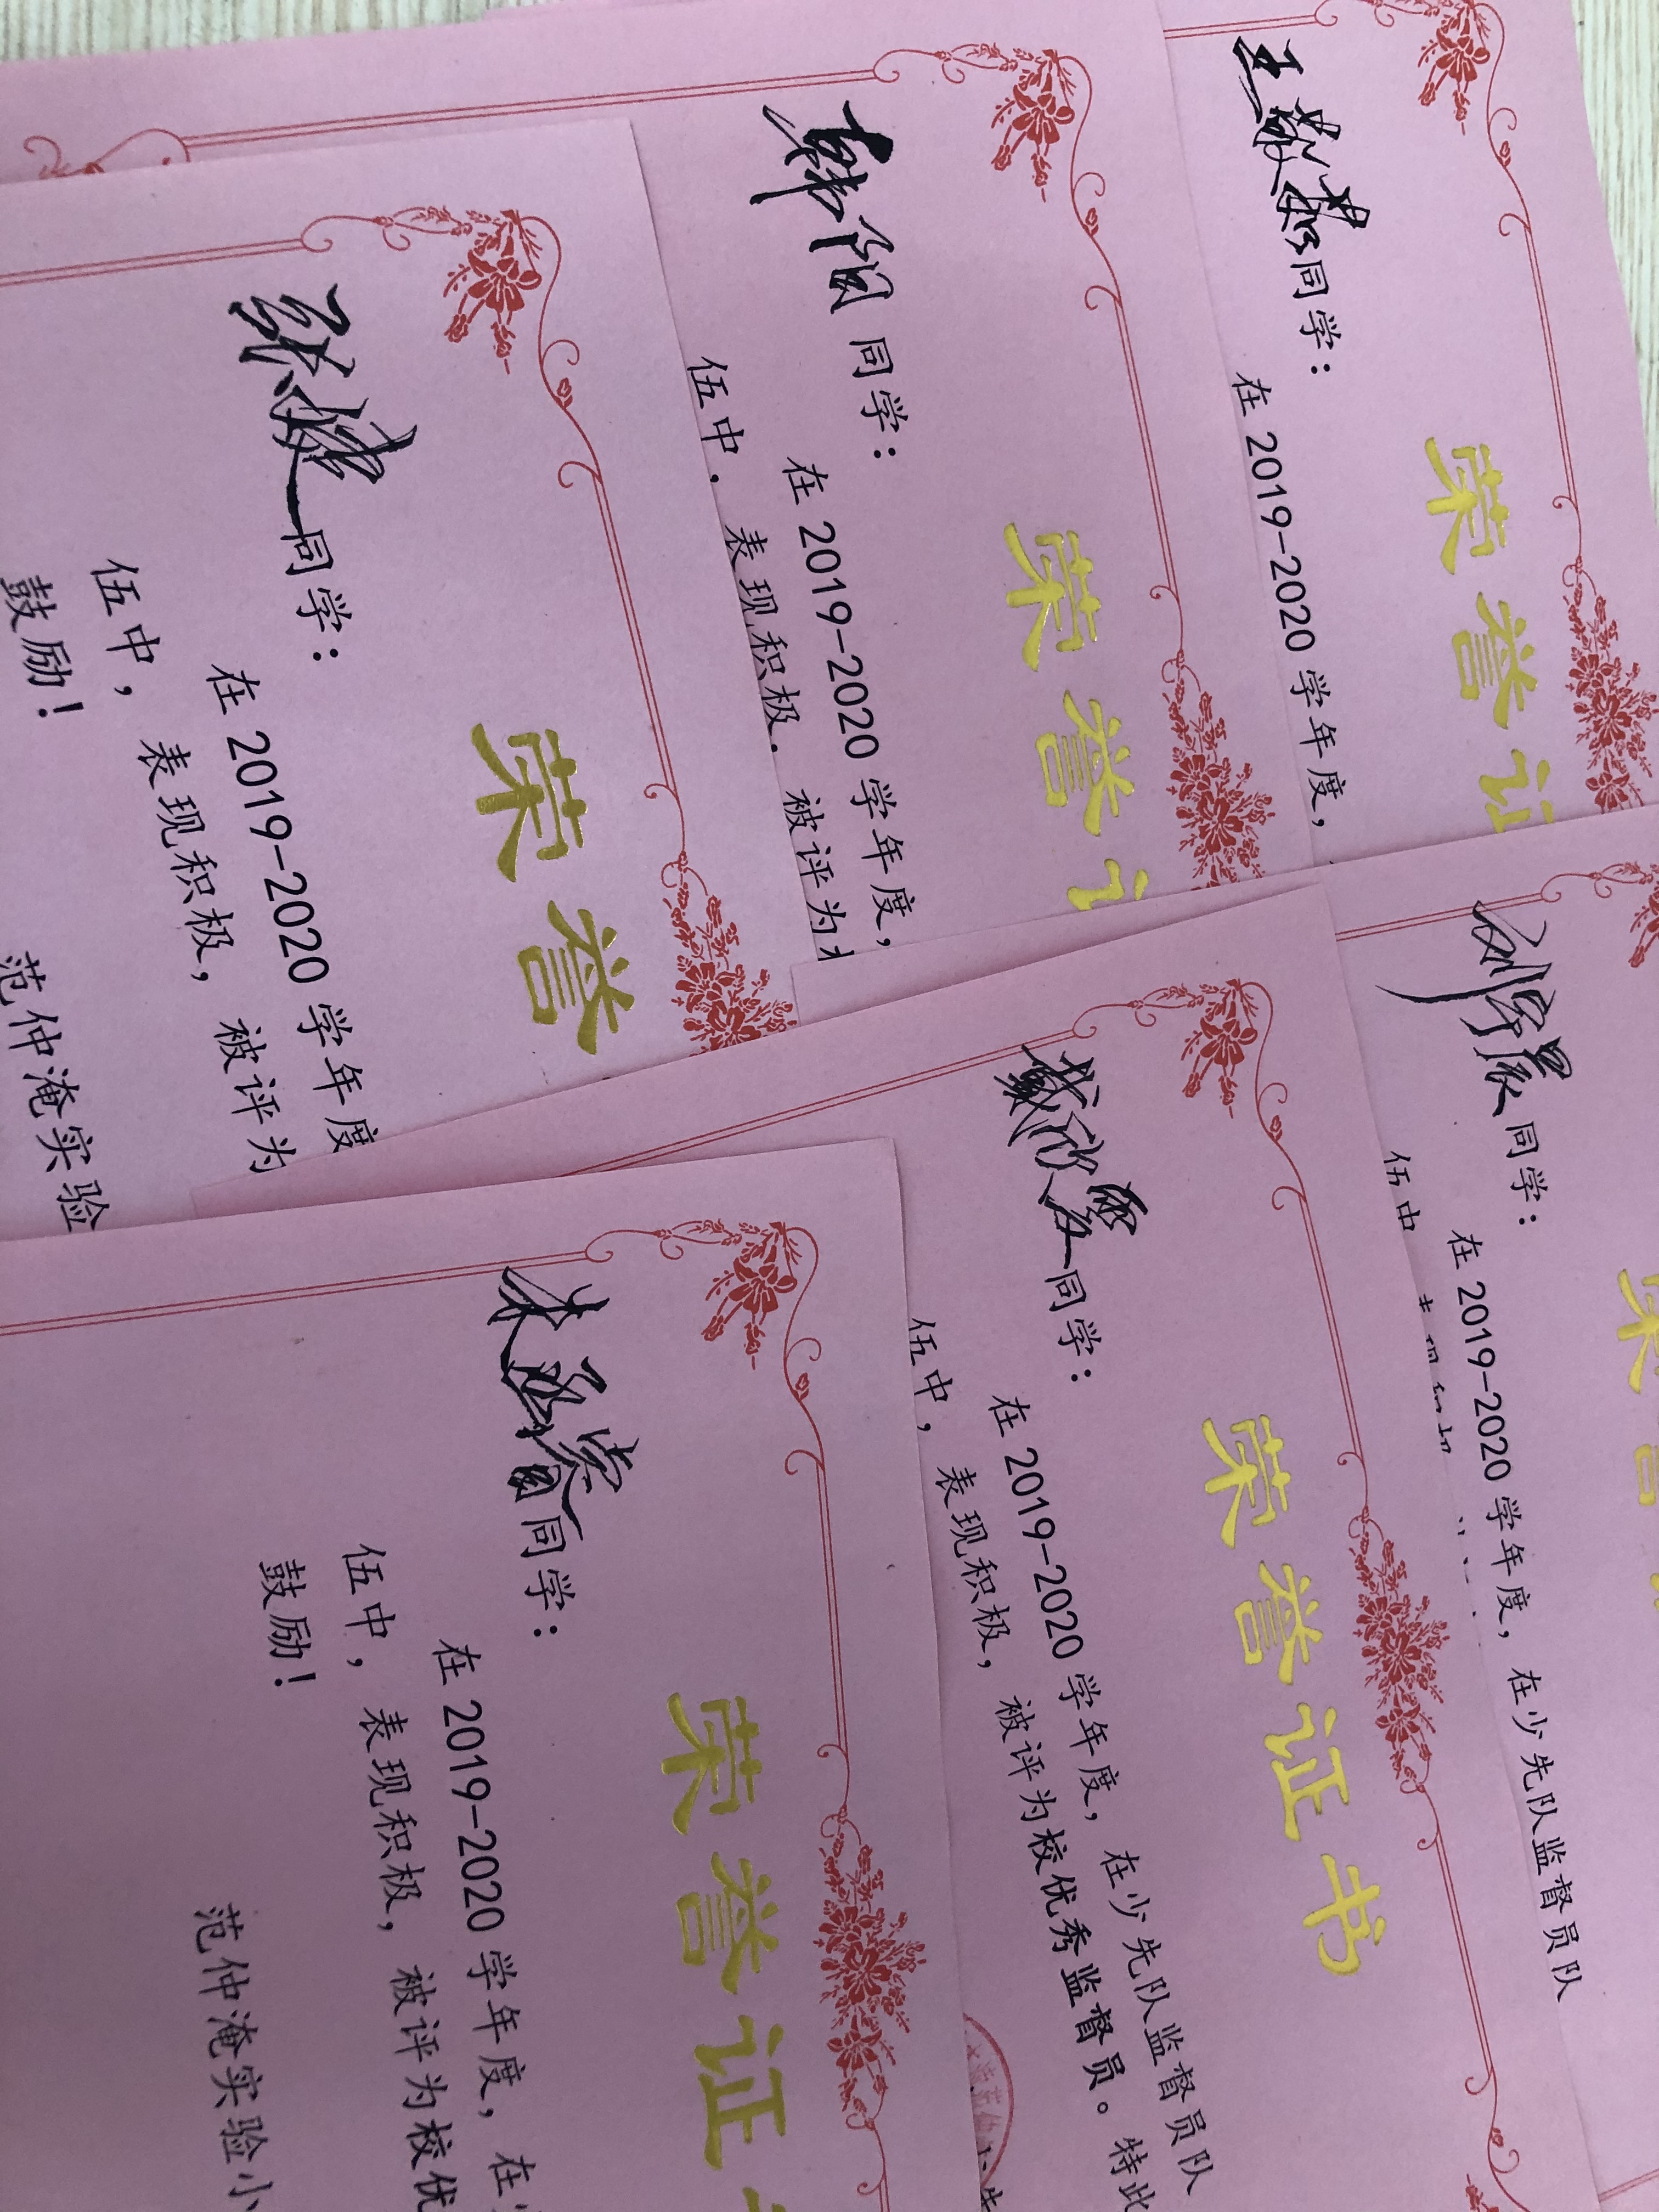 荣誉证
王敬慈同学：
在2019-2020学年度，
荣誉证
韩阳同学：
在2019-2020学年度，
伍中，表现积极，被评为
荣誉
张婕同学：
在2019-2020学年度
伍中，表现积极，被评为
鼓励！
范仲淹实验
荣誉
刘宇晨同学：
在2019-2020学年度，在少先队监督员队
伍中
荣誉证书
戴欣同学：
在2019-2020学年度，在少先队监督员队
伍中，表现积极，被评为校优秀监督员。特此
荣誉证书
朱睿同学：
在2019-2020学年度，在
伍中，表现积极，被评为校优
鼓励！
范仲淹实验小